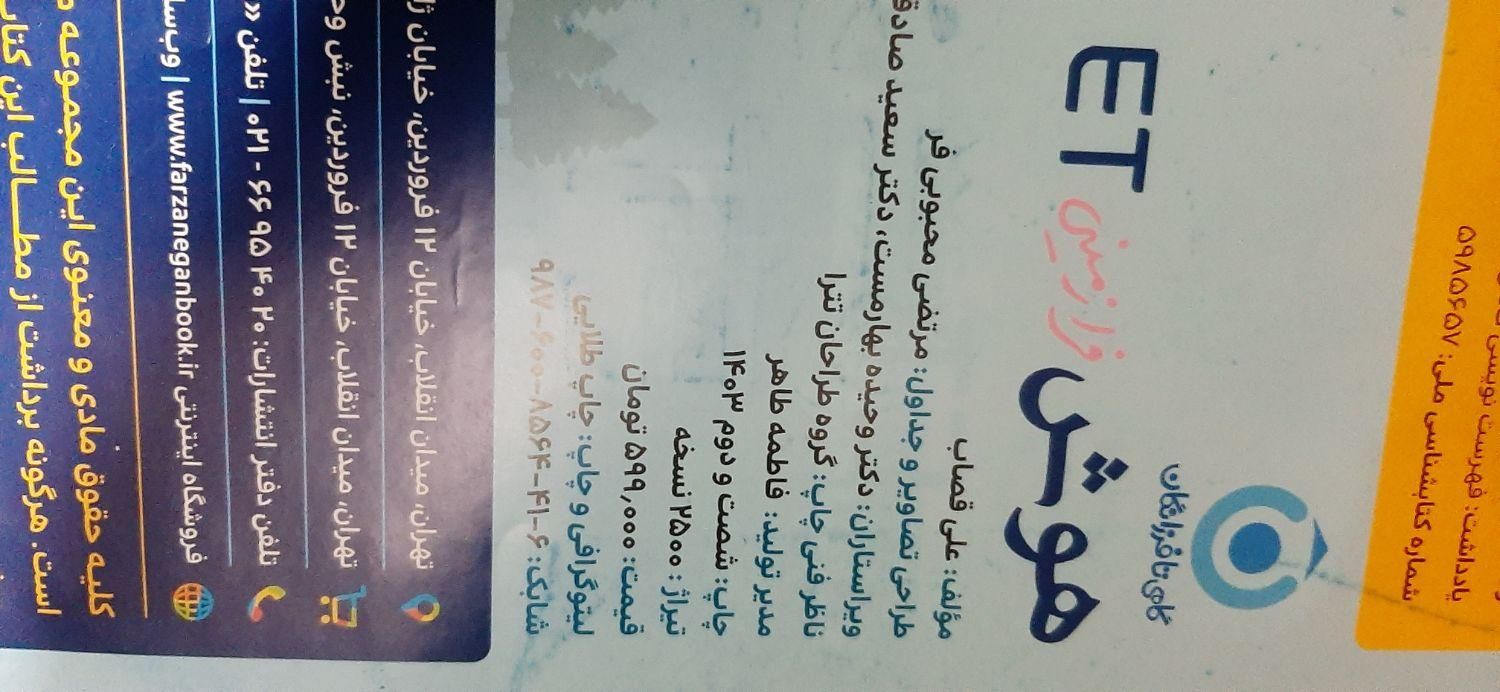 یادداشت: فهرست نویسی
شماره کتابشناسی ملی: ۵۹۸۵۶۵۷
گامی تا فرزانگان
هوش فرازمینی ET
مؤلف: علی قصاب
طراحی تصاویر و جداول: مرتضی محبوبی فر
ویراستاران: دکتر وحیده بهارمست، دکتر سعید
ناظر فنی چاپ: گروه طراحان تترا
مدیر تولید: فاطمه طاهر
چاپ: شصت و دوم ۱۴۰۳
تیراژ: ۲۵۰۰ نسخه
قیمت: ۵۹۹,۰۰۰ تومان
لیتوگرافی و چاپ: چاپ طلایی
شابک: ۶-۴۱-۸۵۶۴-۶۰۰-۹۸۷
تهران، میدان انقلاب، خیابان ۱۲ فروردین، خیابان
تهران، میدان انقلاب، خیابان ۱۲ فروردین، نبش
تلفن دفتر انتشارات: ۲۰ ۴۰ ۹۵ ۶۶ - ۰۲۱ | تلفن
فروشگاه اینترنتی www.farzaneganbook.ir |
کلیه حقوق مادی و معنوی این مجموعه
است. هرگونه برداشت از مطالب این کتاب